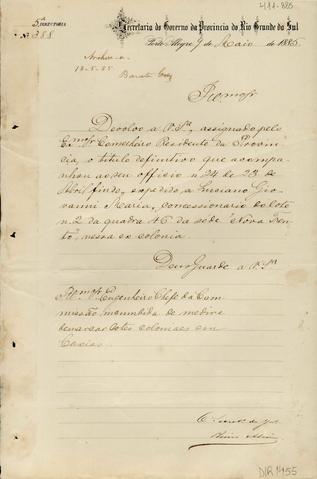 411-885
5ª Directoria
Nº 388
Secretaria do Governo da Provincia do Rio Grande do Sul
Porto Alegre 7 de Maio 1885
Archive-se
18-5-85
Illmo Sr
Devolvo a V.Sª, assignado pelo
Exmo Conselheiro Presidente da Provin-
cia, o titulo definitivo que acompa-
nhou ao seu officio n. 24 de 23 de
Abril findo, expedido a Luciano Gio-
vanni Maria, concessionario do lote
n. 2 da quadra 46 da séde "Nova Tren-
to", nessa ex colonia.
Deus Guarde a V.Sª
Illmo Sr Engenheiro Chefe da Com-
missão incumbida de medir e
demarcar lotes coloniaes em
Caxias
DIR 1455